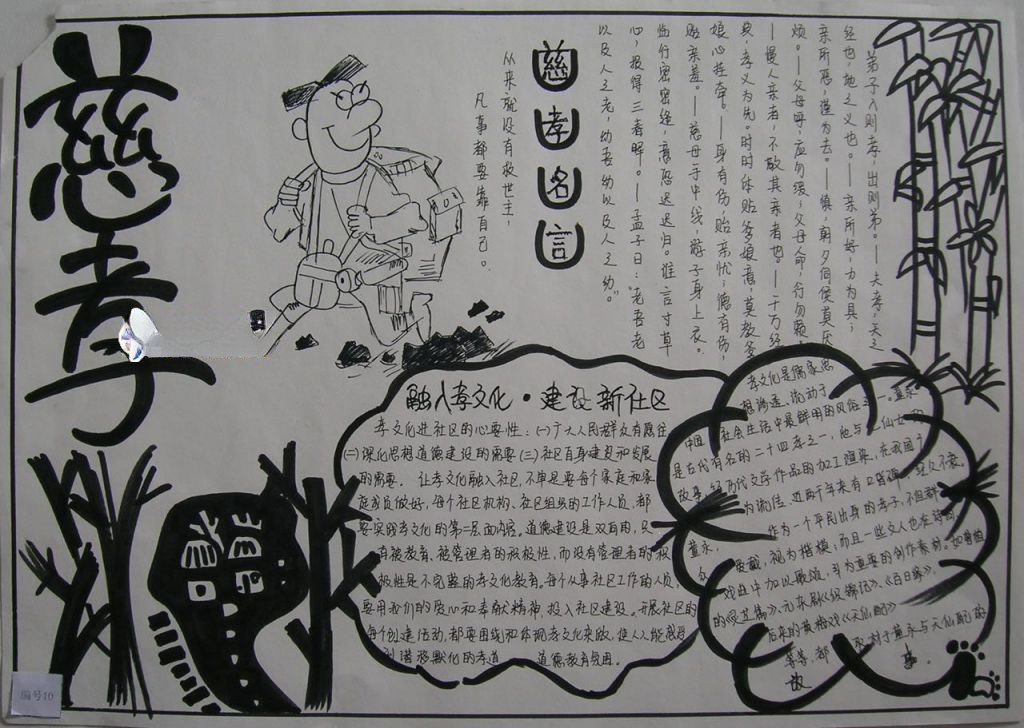 慈孝
慈孝名言
弟子入则孝，出则弟。——夫孝，天之
经也，地之义也。——亲所好，力为具；
亲所恶，谨为去。——慎，朝夕伺候莫厌
烦。——父母呼，应勿缓；父母命，行勿懒。
——慢人亲者，不敬其亲者也。——千万经
典，孝义为先。时时体贴爹娘意，莫教爹
娘心挂牵。——身有伤，贻亲忧；德有伤，
贻亲羞。——慈母手中线，游子身上衣。
临行密密缝，意恐迟迟归。谁言寸草
心，报得三春晖。——孟子曰：“老吾老
以及人之老，幼吾幼以及人之幼。”
从来就没有救世主，
凡事都要靠自己。
融入孝文化·建设新社区
孝文化进社区的必要性：(一)广大人民群众有愿往
(二)深化思想道德建设的需要(三)社区自身建设和发展
的需要。让孝文化融入社区，不单是要每个家庭和家
庭成员做好，每个社区机构、社区组织的工作人员，都
要实践孝文化的第二层面内容。道德建设是双向的，只
有被教育、被管理者的积极性，而没有管理者的积
极性是不完整的孝文化教育。每个从事社区工作的人员，
要用我们的爱心和奉献精神，投入社区建设。开展社区的
每个创建活动，都要围绕和体现孝文化来做，使人人能感受
到潜移默化的孝道 道德教育氛围。
孝文化是儒家思
想渗透、流动于
中国 社会生活中最鲜明的风俗之一。董永
是古代有名的二十四孝之一，他与 仙女的
故事，经历代文学作品的加工渲染，在我国广
为流传。近两千年来有口皆碑，经久不衰。
董永， 作为一个平民出身的孝子，不但群
众 爱戴，视为楷模；而且一些文人也在诗词
戏曲中加以歌颂，并为重要的创作素材。如曹植
的《灵芝篇》、元末剧《织锦记》、《百日缘》，
后来的黄梅戏《天仙配》
等等，都 取材于董永与天仙配的
故 事。
编号10